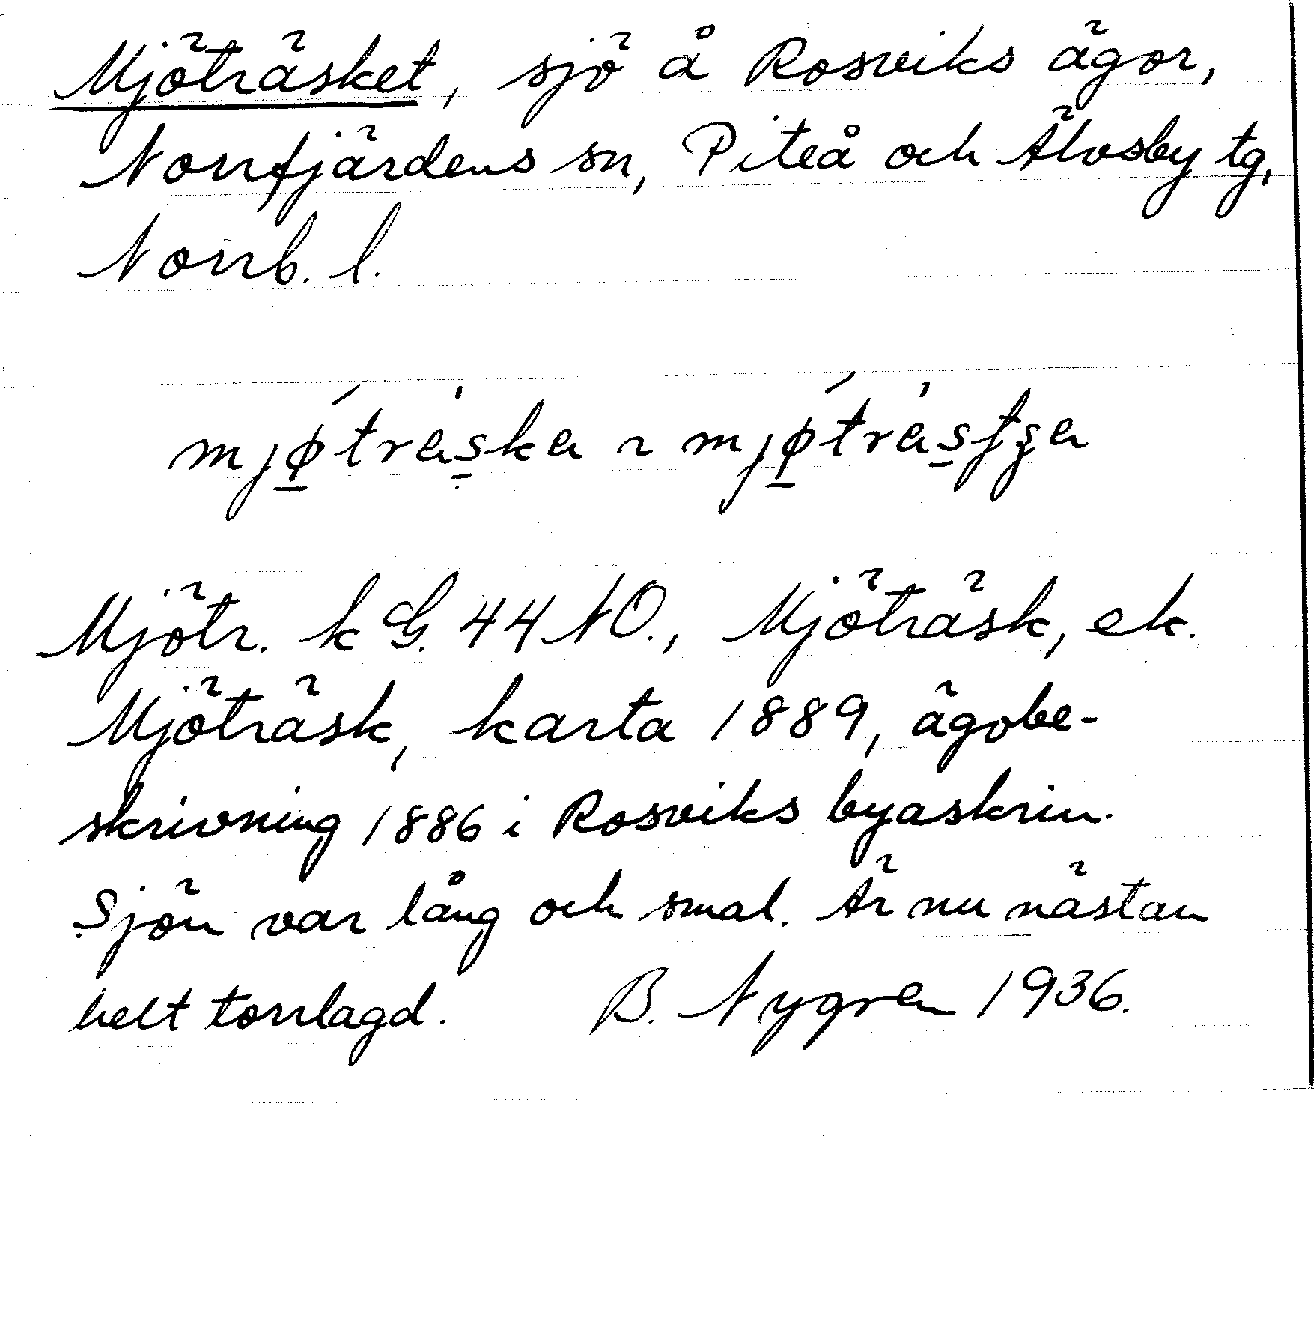 Mjöträsket, sjö å Rosviks ägor,
Norrfjärdens sn, Piteå och Älvsby tg,
Norrb. l.
mjǿ̲trȧs̲ka ~ mjǿ̲trȧs̲tʒa
Mjötr. k G. 44 NO., Mjöträsk, ek.
Mjöträsk, karta 1889, ägobe-
skrivning 1886 i Rosviks byaskrin.
Sjön var lång och smal. Är nu nästan
helt torrlagd. B. Nygren 1936.